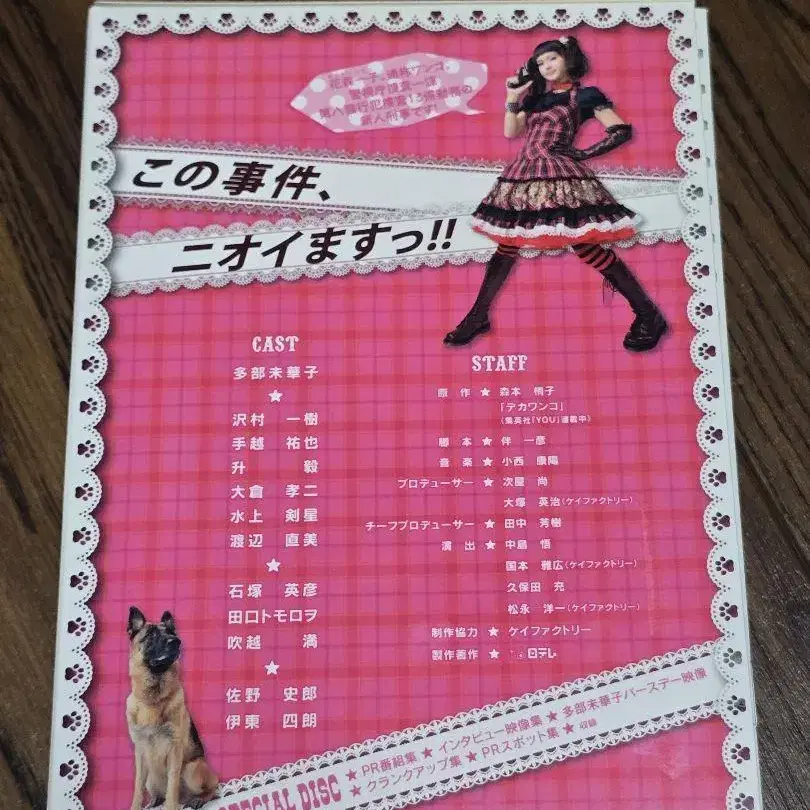 花森一子、通称ワンコ。
警視庁捜査一課
第八強行犯捜査13係勤務の
新人刑事です!
この事件、
ニオイますっ!!
CAST
多部未華子
★
沢村 一樹
手越 祐也
升 毅
大倉 孝二
水上 剣星
渡辺 直美
★
石塚 英彦
田口トモロヲ
吹越 満
★
佐野 史郎
伊東 四朗
STAFF
原作 ★ 森本 梢子
「デカワンコ」
(集英社「YOU」連載中)
脚本 ★ 伴 一彦
音楽 ★ 小西 康陽
プロデューサー ★ 次屋 尚
大塚 英治(ケイファクトリー)
チーフプロデューサー ★ 田中 芳樹
演出 ★ 中島 悟
国本 雅広(ケイファクトリー)
久保田 充
松永 洋一(ケイファクトリー)
制作協力 ★ ケイファクトリー
製作著作 ★ 日テレ
SPECIAL DISC
★ PR番組集 ★ インタビュー映像集 ★ 多部未華子バースデー映像
★ クランクアップ集 ★ PRスポット集 ★ 収録